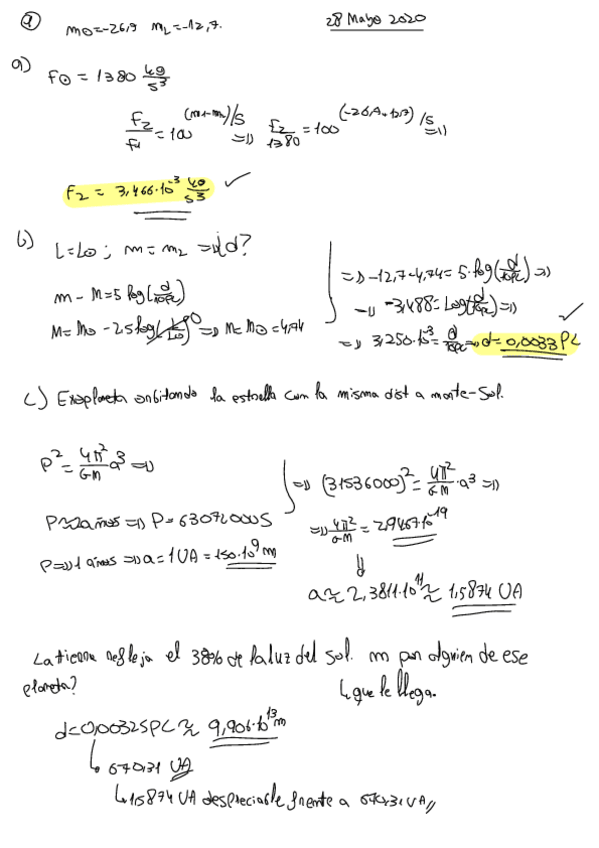 9 m⊙=-26,9 m_L=-12,7. 28 Mayo 2020
a) F⊙ = 1380 kg/s³
F₂/F₁ = 100^(m₁-m₂)/5 => F₂/1380 = 100^(-26,9+12,7)/5 =>
F₂ = 3,466·10⁻³ kg/s³ ✓
b) L=L⊙ ; m=m₂ => ¿d?
m - M = 5 log(d/10pc)
M = M⊙ - 2,5 log(L/L⊙)⁰ => M = M⊙ = 4,74
=> -12,7-4,74 = 5·log(d/10pc) =>
=> -3,488 = log(d/10pc) =>
=> 3,250·10⁻³ = d/10pc => d = 0,0033 PC ✓
c) Exoplaneta orbitando la estrella con la misma dist a monte-Sol.
P² = 4π²/GM a³ =>
P≈2 años => P = 63072000 s
P => 1 años => a = 1 UA = 150·10⁹ m
=> (31536000)² = 4π²/GM ·a³ =>
=> 4π²/GM = 2,9467·10⁻¹⁹
a ≈ 2,3811·10¹¹ ≈ 1,5874 UA
La tierra refleja el 38% de la luz del sol. m por alguien de ese
planeta? ↳ que le llega.
d=0,00325PC ≈ 9,906·10¹³ m
↳ 670,31 UA
↳ 1,5874 UA despreciable frente a 670,31 UA //